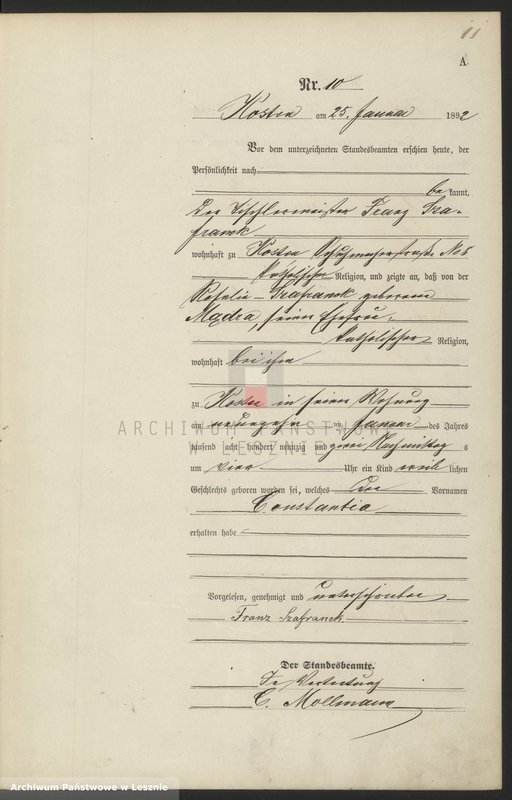 11
A.
Nr. 10
Kosten am 25. Januar 1892
Vor dem unterzeichneten Standesbeamten erschien heute, der
Persönlichkeit nach
be kannt,
Der Tischlermeister Franz Sza-
franek
wohnhaft zu Kosten Schuhmacherstraße No 5
katholischer Religion, und zeigte an, daß von der
Rosalie Szafranek geborenen
Mądra, seiner Ehefrau,
katholischer Religion,
wohnhaft bei ihm
zu Kosten in seiner Wohnung
am neunzehn ten Januar des Jahres
tausend acht hundert neunzig und zwei Nachmittags
um vier Uhr ein Kind weib lichen
Geschlechts geboren worden sei, welches den Vornamen
Constantia
erhalten habe
Vorgelesen, genehmigt und unterschrieben
Franz Szafranek
Der Standesbeamte.
In Vertretung
C. Mollmann
ARCHIWUM PAŃSTWOWE
W LESZNIE
Archiwum Państwowe w Lesznie